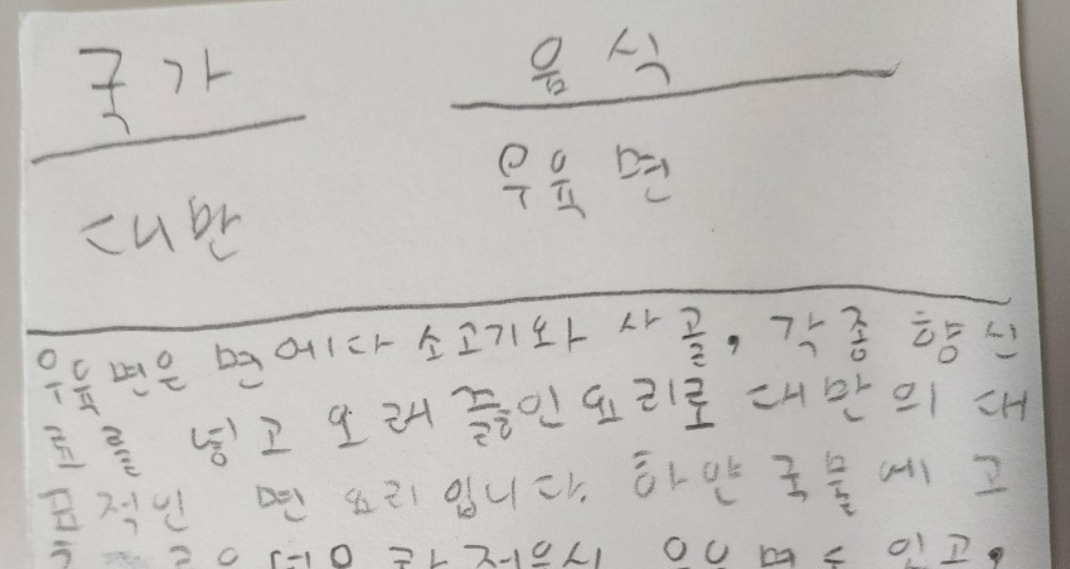 국가 음식
대만 우육면
우육면은 면에다 소고기와 사골, 각종 향신
료를 넣고 오래 끓인 요리로 대만의 대
표적인 면 요리입니다. 하얀 국물에 고